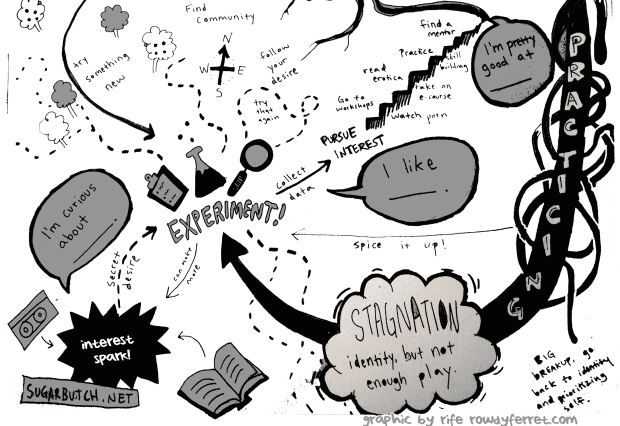 Find
community
try
something
new
N
W
E
S
follow
your
desire
try
that
again
find a
mentor
Practice
skill
building
read
erotica
take an
e-course
Go to
workshops
watch porn
I'm pretty
good at
PRACTICING
PURSUE
INTEREST
I like
collect
data
EXPERIMENT!
I'm curious
about
spice it up!
secret
desire
can make
more
interest
spark!
SUGARBUTCH.NET
STAGNATION
identity, but not
enough play.
BIG
BREAKUP, go
back to identity
and prioritizing
self.
graphic by rife rowdyferret.com